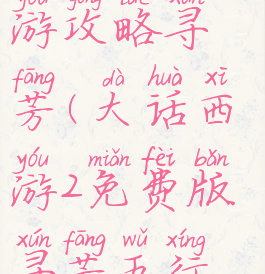 yóu gōng lüè xún
游攻略寻
fāng dà huà xī
芳(大话西
yóu miǎn fèi bǎn
游2免费版
xún fāng wǔ xíng
寻芳五行